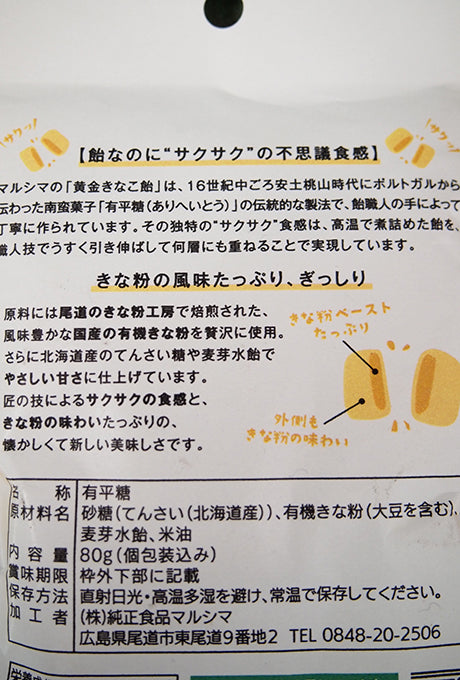 サクッ
サクッ
【飴なのに“サクサク”の不思議食感】
マルシマの「黄金きなこ飴」は、16世紀中ごろ安土桃山時代にポルトガルから
伝わった南蛮菓子「有平糖(ありへいとう)」の伝統的な製法で、飴職人の手によって
丁寧に作られています。その独特の“サクサク”食感は、高温で煮詰めた飴を、
職人技でうすく引き伸ばして何層にも重ねることで実現しています。
きな粉の風味たっぷり、ぎっしり
原料には尾道のきな粉工房で焙煎された、
風味豊かな国産の有機きな粉を贅沢に使用。
さらに北海道産のてんさい糖や麦芽水飴で
やさしい甘さに仕上げています。
匠の技によるサクサクの食感と、
きな粉の味わいたっぷりの、
懐かしくて新しい美味しさです。
きな粉ペースト
たっぷり
外側も
きな粉の味わい
名称 有平糖
原材料名 砂糖(てんさい(北海道産))、有機きな粉(大豆を含む)、
麦芽水飴、米油
内容量 80g(個包装込み)
賞味期限 枠外下部に記載
保存方法 直射日光・高温多湿を避け、常温で保存してください。
加工者 (株)純正食品マルシマ
広島県尾道市東尾道9番地2 TEL 0848-20-2506